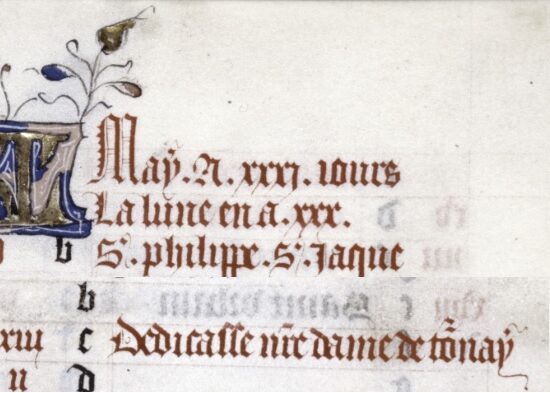 KL May. A. xxxi. iours
La lune en a. xxx.
b S. philippe. S. Jaque
b
xiii c Dedicasse nre dame de tonay
ii d